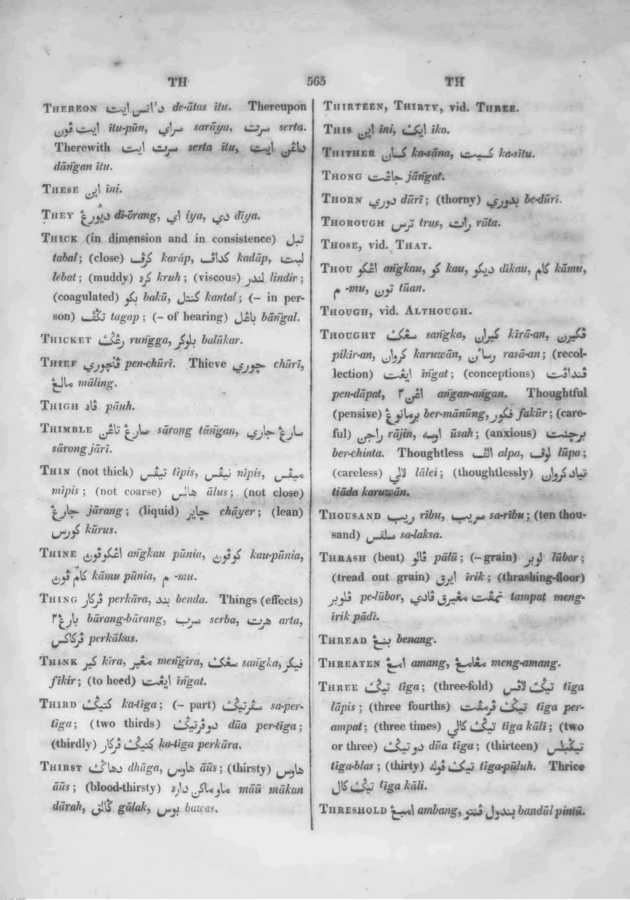 TH 565 TH
THEREON د'اتس ايت de-ātas itu. Thereupon
ايت ڤون itu-pūn, سراي sarāya, سرت serta.
Therewith سرت ايت serta itu, داڠن ايت
dāñgan itu.
THESE اين ini.
THEY دي'اورڠ di-ōrang, اي iya, دي dīya.
THICK (in dimension and in consistence) تبل
tabal; (close) كرڤ karáp, كداڤ kadáp, لبت
lebat; (muddy) كره kruh; (viscous) لندر lindir;
(coagulated) بكو bakū, كنتل kantal; (– in per-
son) تگڤ tagap; (– of hearing) باڠل bāñgal.
THICKET رڠگ ruñgga, بلوكر balūkar.
THIEF ڤنچوري pen-chūrī. Thieve چوري chūrī,
مالڠ māling.
THIGH ڤاه pāuh.
THIMBLE سارڠ تاڠن sārong tāñgan, سارڠ جاري
sārong jārī.
THIN (not thick) تيڤس tīpis, نيڤس nīpis, ميڤس
mīpis; (not coarse) هالس ālus; (not close)
جارڠ jārang; (liquid) چاير chāyer; (lean)
كورس kūrus.
THINE اڠكوڤون añgkau pūnia, كوڤون kau-pūnia,
كامڤون kāmu pūnia, م -mu.
THING ڤركار perkāra, بند benda. Things (effects)
بارڠ٢ bārang-bārang, سرب serba, هرت arta,
ڤركاكس perkākas.
THINK كير kīra, مڠير meñgira, سڠك sañgka, فيكر
fikir; (to heed) ايڠت iñgat.
THIRD كتيگ ka-tiga; (– part) سڤرتيگ sa-per-
tiga; (two thirds) دوڤرتيگ dūa per-tiga;
(thirdly) كتيگ ڤركار ka-tiga perkāra.
THIRST دهاگ dhāga, هاوس āūs; (thirsty) هاوس
āūs; (blood-thirsty) ماوماكن داره māū mākan
dārah, گالق gālak, بوس bawas.
THIRTEEN, THIRTY, vid. THREE.
THIS اين ini, ايك ika.
THITHER كسان ka-sāna, كسيت ka-sītu.
THONG جاڠت jāñgat.
THORN دوري dūrī; (thorny) بدوري be-dūrī.
THOROUGH ترس trus, رات rāta.
THOSE, vid. THAT.
THOU اڠكو añgkau, كو kau, ديكو dīkau, كام kāmu,
م -mu, تون tūan.
THOUGH, vid. ALTHOUGH.
THOUGHT سڠك sañgka, كيران kīrā-an, ڤيكيرن
pikir-an, كروان karuwān, رسا'ن rasā-an; (recol-
lection) ايڠت iñgat; (conceptions) ڤنداڤت
pen-dāpat, اڠن٢ añgan-añgan. Thoughtful
(pensive) برمانوڠ ber-mānūng, فكور fakūr; (care-
ful) راجن rājin, اوسه ūsah; (anxious) برچنت
ber-chinta. Thoughtless الڤ alpa, لوڤ lūpa;
(careless) لالي lālei; (thoughtlessly) تياد كروان
tiāda karuwān.
THOUSAND ريب rību, سريب sa-rību; (ten thou-
sand) سلقس sa-laksa.
THRASH (beat) ڤالو pālū; (– grain) لوبر lūbor;
(tread out grain) ايرق īrik; (thrashing-floor)
ڤلوبر pe-lūbor, تمڤت مڠيرق ڤادي tampat meng-
īrik pādī.
THREAD بنڠ benang.
THREATEN امڠ amang, مڠامڠ meng-amang.
THREE تيگ tiga; (three-fold) تيگ لاڤس tiga
lāpis; (three fourths) تيگ ڤرمڤت tiga per-
ampat; (three times) تيگ كالي tiga kālī; (two
or three) دو تيگ dūa tiga; (thirteen) تيگبلس
tiga-blas; (thirty) تيگ ڤوله tiga-pūluh. Thrice
تيگ كال tiga kāli.
THRESHOLD امبڠ ambang, بندول ڤنتو bandūl pintū.